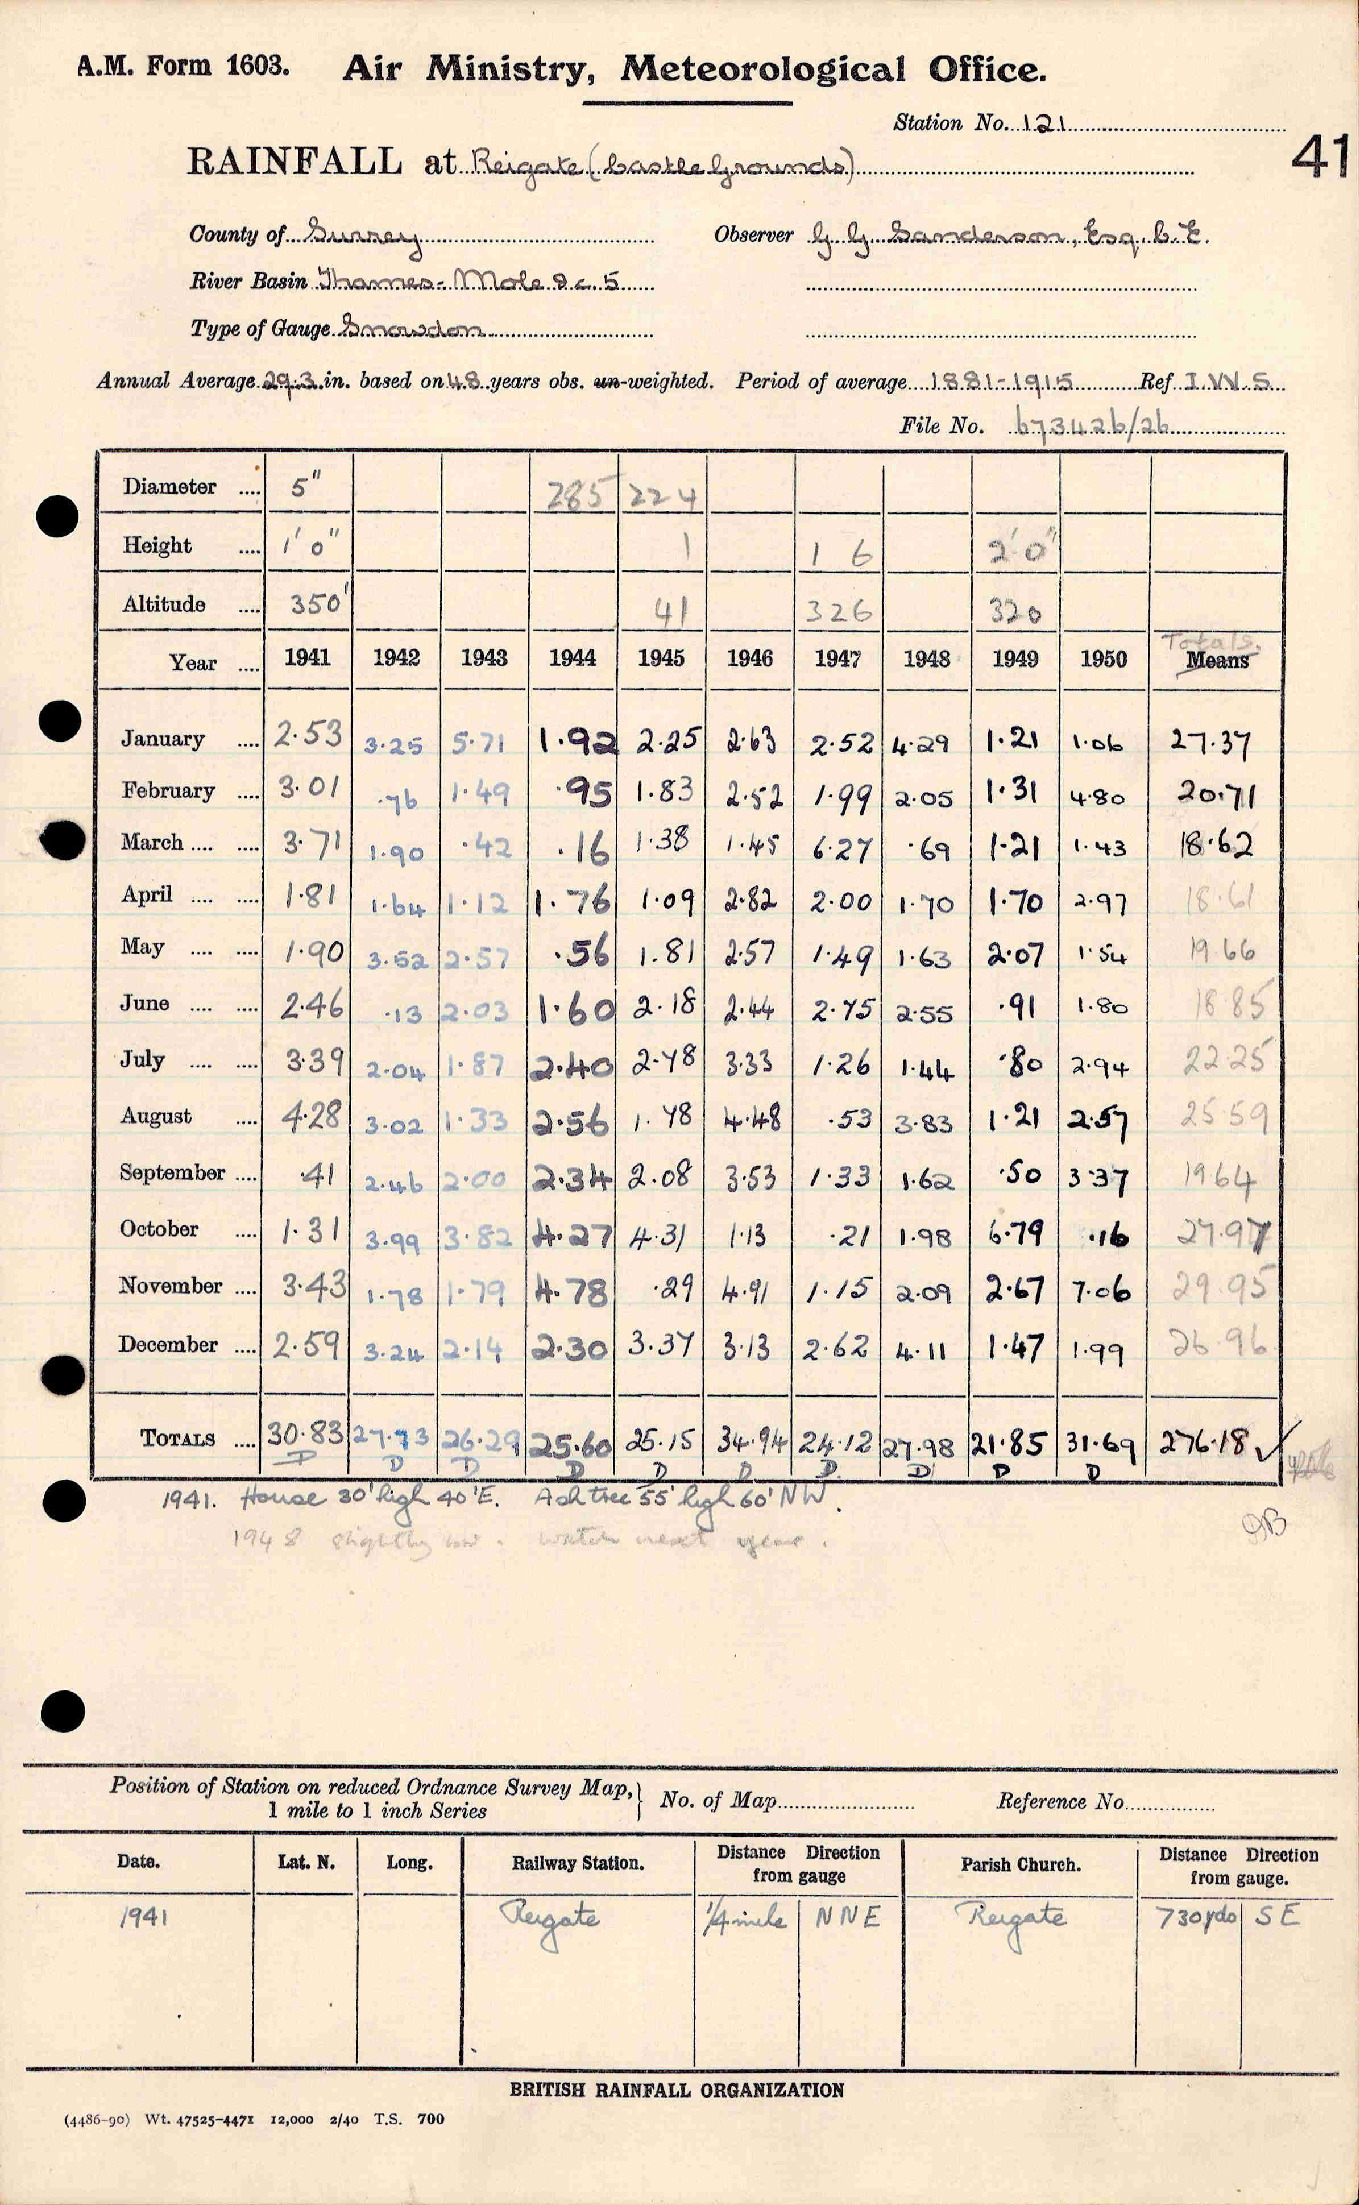 A.M. Form 1603. Air Ministry, Meteorological Office.
Station No. 121
41
RAINFALL at Reigate (Castle Grounds)
County of Surrey Observer G. G. Sanderson, Esq. C.E.
River Basin Thames - Mole &c. 5
Type of Gauge Snowdon
Annual Average 29.3 in. based on 48 years obs. un-weighted. Period of average 1881-1915 Ref I.W.S
File No. 673426/26
Diameter .... 5" 285 224
Height .... 1' 0" 1 1 6 2' 0"
Altitude .... 350' 41 326 320
Totals.
Year .... 1941 1942 1943 1944 1945 1946 1947 1948 1949 1950 Means
January .... 2.53 3.25 5.71 1.92 2.25 2.63 2.52 4.29 1.21 1.06 27.37
February .... 3.01 .76 1.49 .95 1.83 2.52 1.99 2.05 1.31 4.80 20.71
March .... .... 3.71 1.90 .42 .16 1.38 1.45 6.27 .69 1.21 1.43 18.62
April .... .... 1.81 1.64 1.12 1.76 1.09 2.82 2.00 1.70 1.70 2.97 18.61
May .... .... 1.90 3.52 2.57 .56 1.81 2.57 1.49 1.63 2.07 1.54 19.66
June .... .... 2.46 .13 2.03 1.60 2.18 2.44 2.75 2.55 .91 1.80 18.85
July .... .... 3.39 2.04 1.87 2.40 2.78 3.33 1.26 1.44 .80 2.94 22.25
August .... 4.28 3.02 1.33 2.56 1.78 4.48 .53 3.83 1.21 2.57 25.59
September .... .41 2.46 2.00 2.34 2.08 3.53 1.33 1.62 .50 3.37 19.64
October .... 1.31 3.99 3.82 4.27 4.31 1.13 .21 1.98 6.79 .16 27.97
November .... 3.43 1.78 1.79 4.78 .29 4.91 1.15 2.09 2.67 7.06 29.95
December .... 2.59 3.24 2.14 2.30 3.37 3.13 2.62 4.11 1.47 1.99 26.96
TOTALS .... 30.83 27.73 26.29 25.60 25.15 34.94 24.12 27.98 21.85 31.69 276.18 ✓
D D D D D D D D D D
1941. House 30' high 40' E. Ash tree 55' high 60' NW.
1948 slightly low. watch next year.
Position of Station on reduced Ordnance Survey Map, } No. of Map Reference No
1 mile to 1 inch Series
Date. Lat. N. Long. Railway Station. Distance Direction from gauge Parish Church. Distance Direction from gauge.
1941 Reigate 1/4 mile NNE Reigate 730 yds SE
BRITISH RAINFALL ORGANIZATION
(4486-90) Wt. 47525-4471 12,000 2/40 T.S. 700